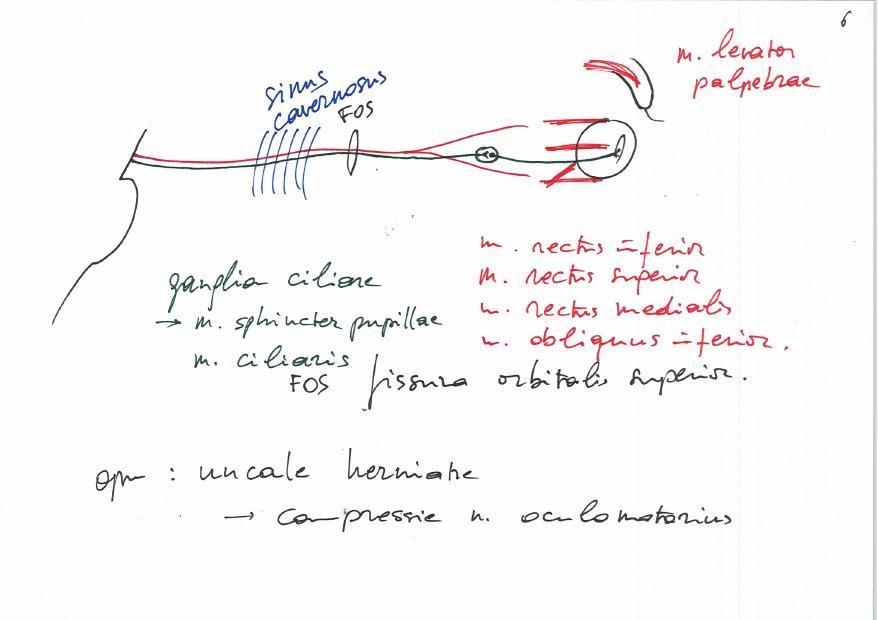 6
m. levator
palpebrae
sinus
cavernosus
FOS
m. rectus inferior
m. rectus superior
m. rectus medialis
m. obliquus inferior.
ganglion ciliare
→ m. sphincter pupillae
m. ciliaris
FOS fissura orbitalis superior.
opm : uncale herniatie
→ compressie n. oculomotorius